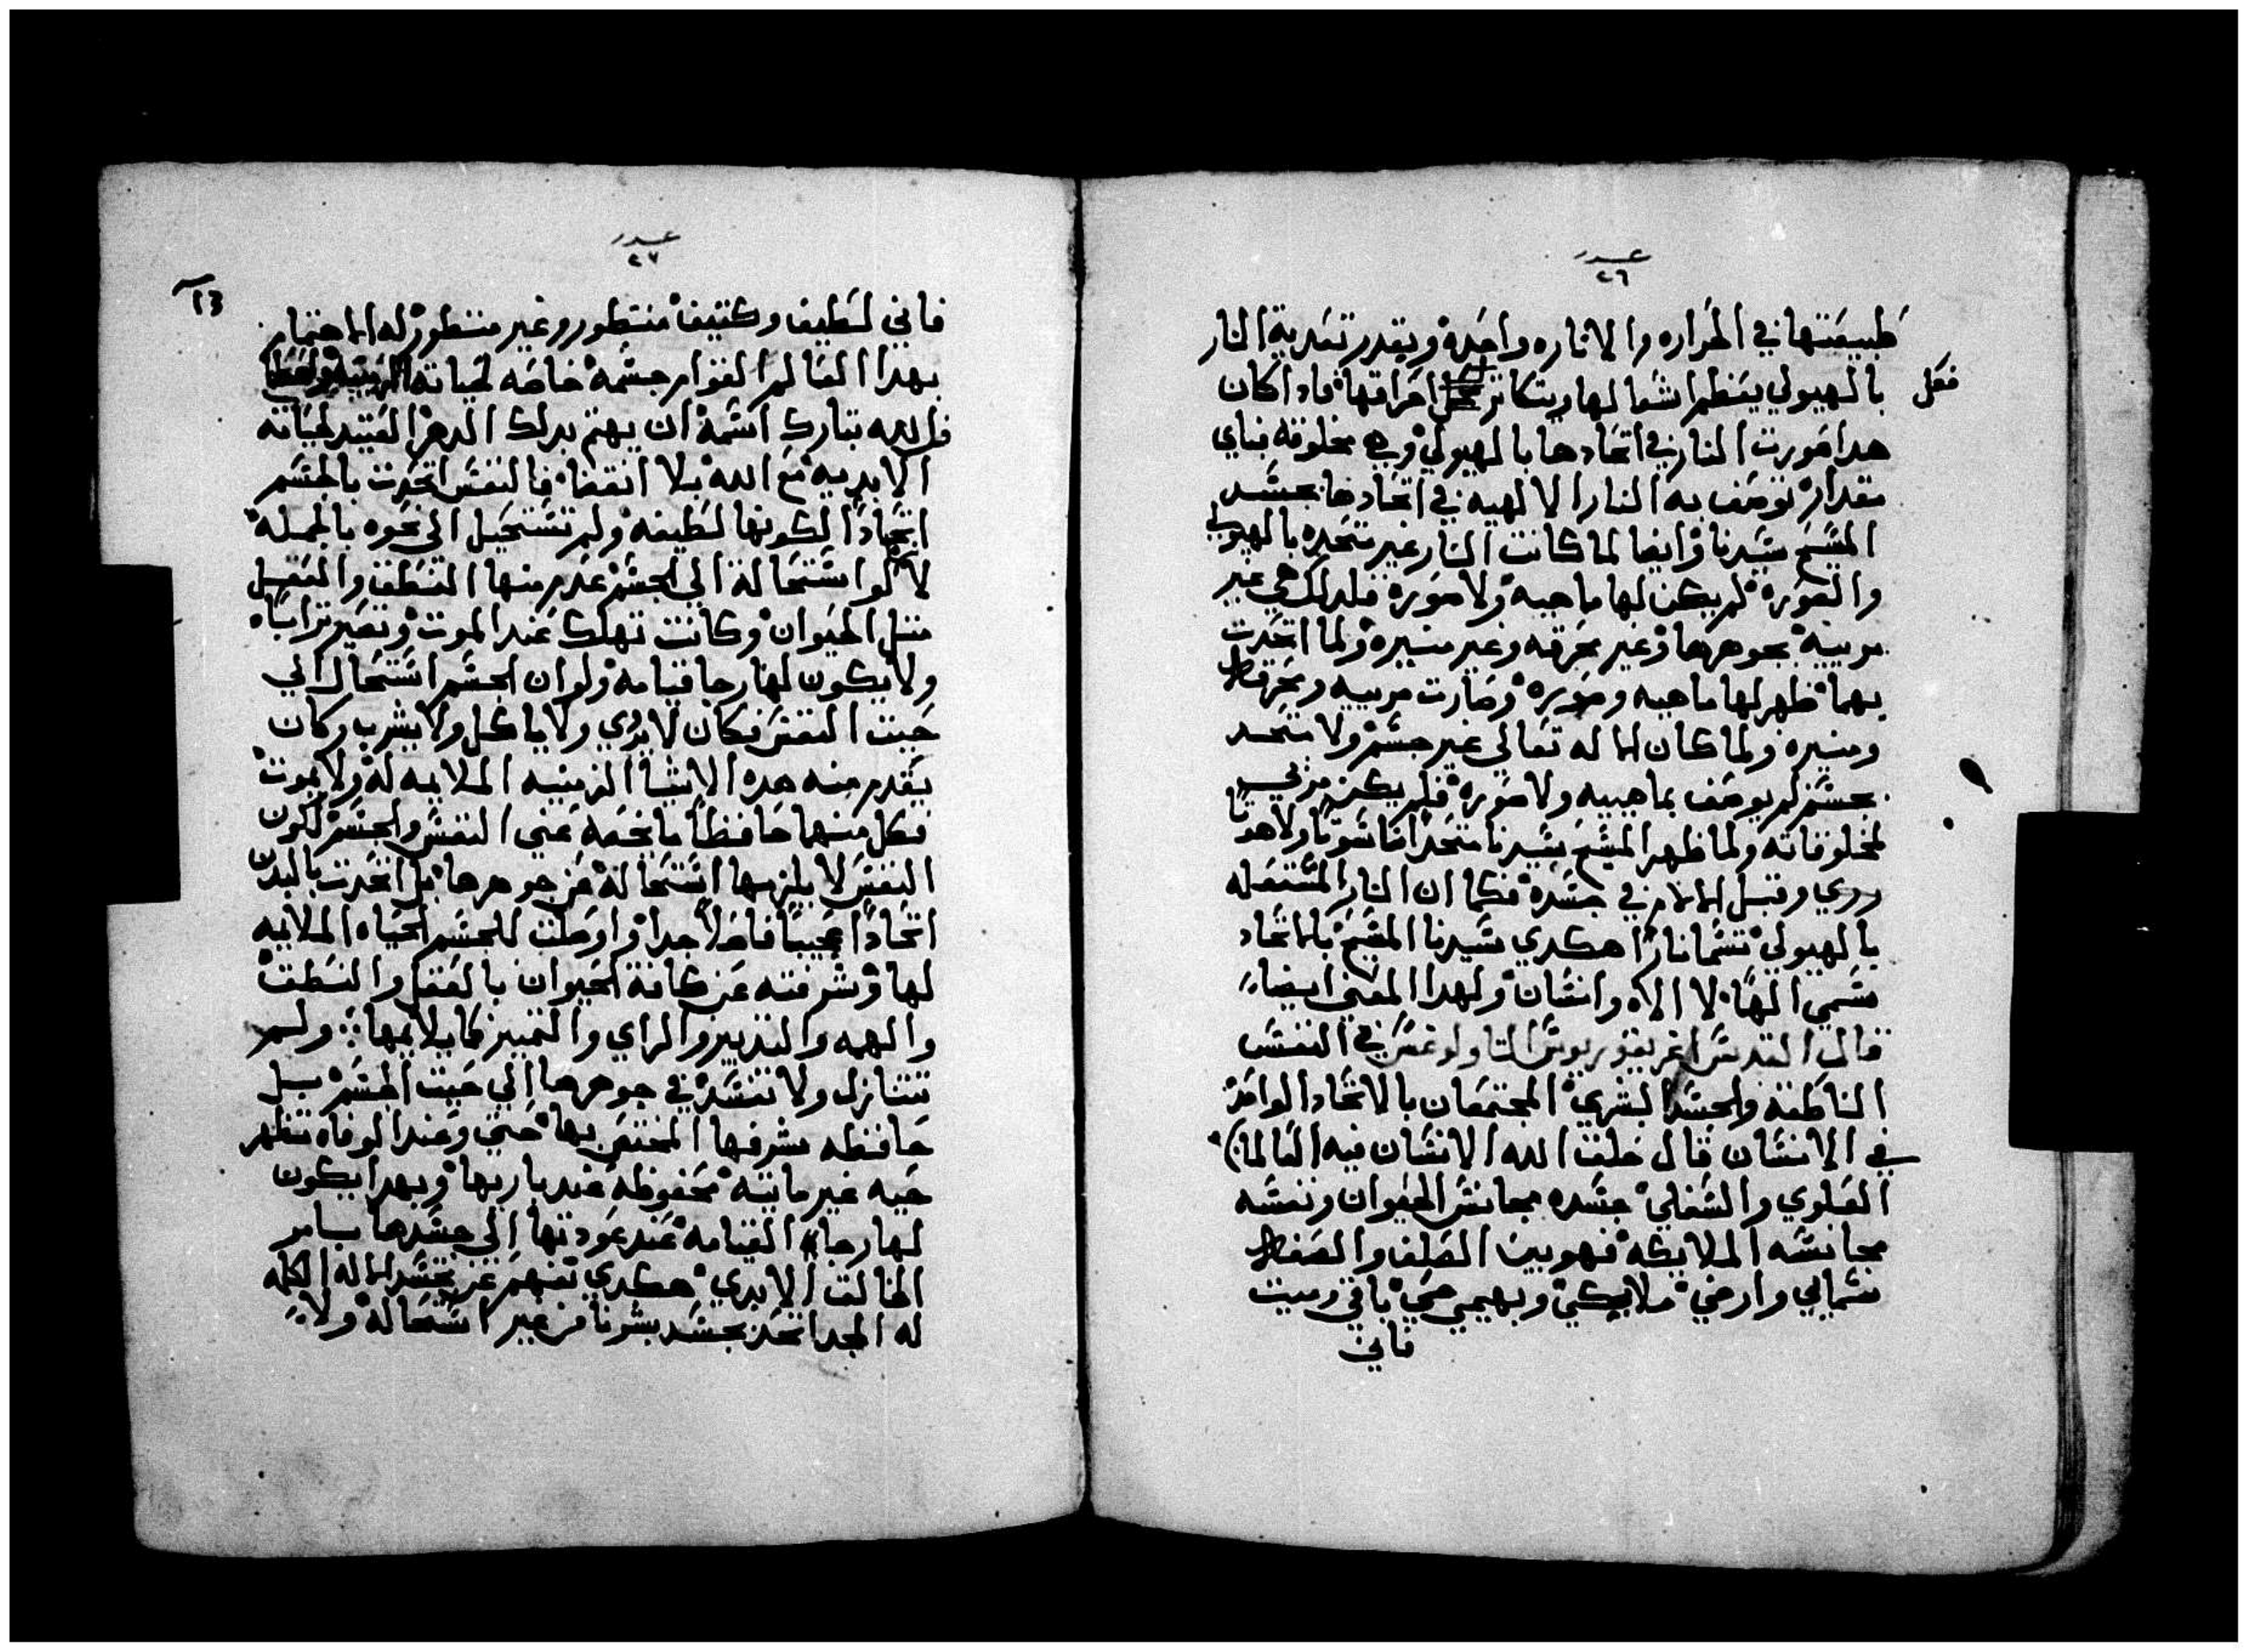 عدد
٢٦
طبيعتها في الحراره والاناره واحدة وبقدر تغدية النار
بالهيولي يعظم اشعالها ويتكاتر احراقها فادا كان
فعل
هدا صورت النار في اتحادها بالهيولي وهي مخلوقه فباي
مقدار توصف به النار الالهيه في اتحادها بجسد
المسيح سيدنا وايضا لما كانت النار غير متحده بالهيولي
والصوره لم يكن لها ماهيه ولا صوره فلدلك هي غير
مرييه بجوهرها وغير محرقه وغير منيره ولما اتحدت
بهما ظهر لها ماهيه وصوره وصارت مرييه ومحرقه
ومنيره ولما كان الاله تعالي غير جسم ولا متحد
بجسم لم يوصف بماهييه ولا صوره فلم يكن مريي
لمخلوقاته ولما ظهر المسيح سيدنا متحدا ناسوتا ولاهوتا
رري وقبل الالام في جسده فكما ان النار المشتعله
بالهيولي تسما نارا هكدي سيدنا المسيح بالاتحاد
سمي الها لا الاه وانسان ولهدا المعني ايضا
قال القديس اغريغوريوس التاولوغس في النفس
الناطقه والجسد البشري المجتمعان بالاتحاد الواحد
في الانسان قال خلق الله الانسان فيه العالمان
العلوي والسفلي جسده مجانس الحيوان ونفسه
مجانسه الملايكه فهو بين الصلف والصفا
سمايي وارضي ملايكي وبهيمي حي باقي وميت
فاني
عدد
٢٧
13
فاني لطيف وكتيف منتطور وغير منتطور له الاهتمام
بهدا العالم القوام جسمه خاصه لحياته الزمنيه
فالله تبارك اسمه ان يهتم بدلك الدهر العتيد لحياته
الابديه مع الله بلا انقضا فالنفس اتحدت بالجسم
اتحادا لكونها لطيفه ولم تستحيل الي نحوه بالجمله
لا لو استحالة الي الجسم عدم منها النطق والعقل
متل الحيوان وكانت تهلك عند الموت وتصير ترابا
ولا يكون لها رجا قيامه ولو ان الجسم استحال الي
حيت النفس فكان لا يري ولا ياكل ولا يشرب وكان
يعدم منه هده الاشيا الزمنيه الملايمه له ولا يموت
فكل منهما حافظا ما يخصه عني النفس والجسم لكون
النفس لا يلزمها استحالة من جوهرها بل اتحدت بالبدن
اتحادا عجيبا فاضلا جدا واوصلت للجسم الحياه الملايمه
لها وشرفته عن كافة الحيوان بالعقل والنطق
والهمه والتدبير والراي والتمييز كما يلايمها ولم
تتنازل ولا تنفسد في جوهرها الي حيت الجسم بل
حافظه شرفها المختص بها حتي وعند الوفاه تظهر
حيه غير مايته محفوظه عند باريها وبهدا يكون
لها رجا القيامه عند عودتها الي جسدها بامر
الخالق الابدي هكدي تفهم عن تجسد الاله الكلمه
له المجد اتحد بجسد بشرنا من غير استحالة ولا